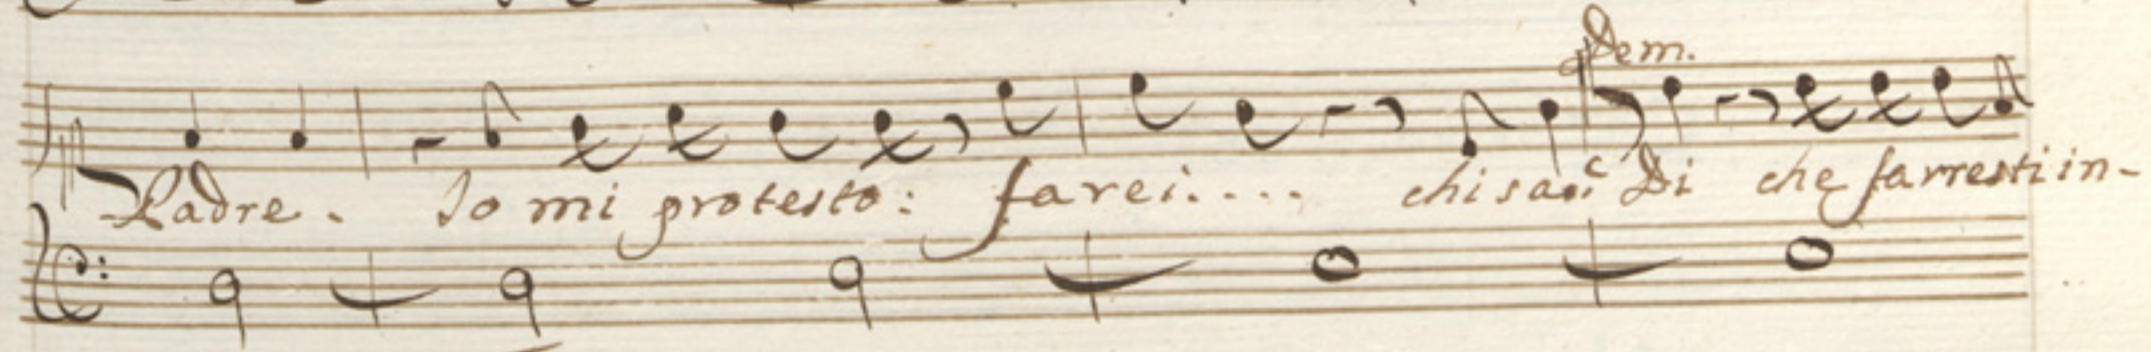 Dem.
Padre. Io mi protesto: farei.... chi sa.. Di che farresti in-